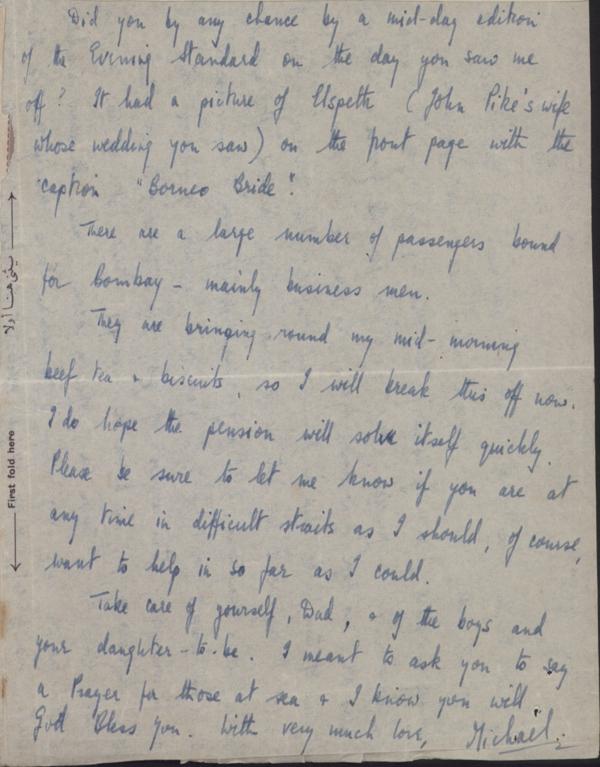 Did you by any chance by a mid-day edition
of the Evening Standard on the day you saw me
off? It had a picture of Elspeth (John Pike's wife
whose wedding you saw) on the front page with the
caption "Borneo Bride".
There are a large number of passengers bound
for Bombay - mainly business men.
They are bringing round my mid-morning
beef tea + biscuits, so I will break this off now.
I do hope the pension will solve itself quickly.
Please be sure to let me know if you are at
any time in difficult straits as I should, of course,
want to help in so far as I could.
Take care of yourself, Dad, + of the boys and
your daughter-to-be. I meant to ask you to say
a Prayer for those at sea + I know you will
God Bless you. With very much love, Michael.
First fold here
يثنى هنا أولا